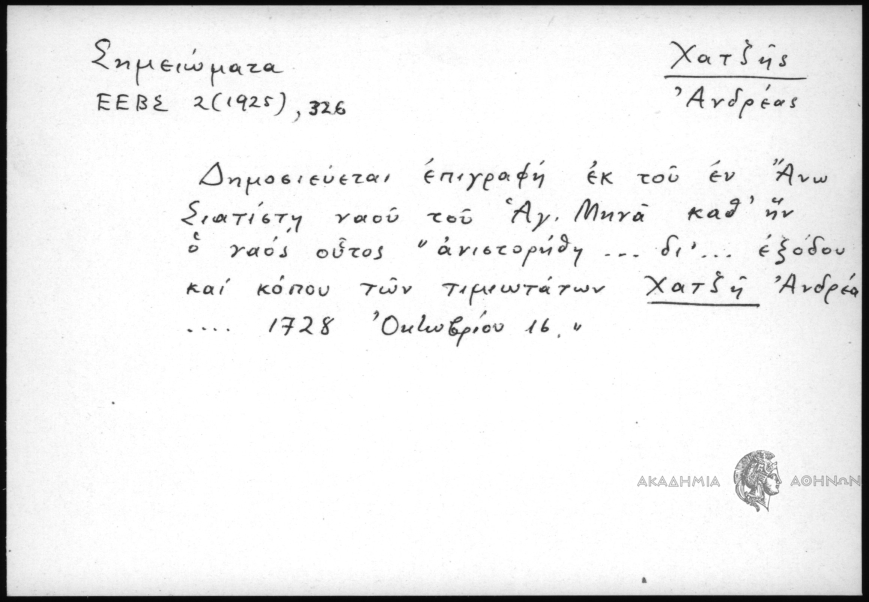 Σημειώματα
ΕΕΒΣ 2(1925), 326
Χατζῆς
Ἀνδρέας
Δημοσιεύεται ἐπιγραφή ἐκ τοῦ ἐν Ἄνω
Σιατίστῃ ναοῦ τοῦ Ἁγ. Μηνᾶ καθ' ἥν
ὁ ναός οὗτος "ἀνιστορήθη ... δι' ... ἐξόδου
καί κόπου τῶν τιμιωτάτων Χατζῆ Ἀνδρέα
.... 1728 Ὀκτωβρίου 16."
ΑΚΑΔΗΜΙΑ ΑΘΗΝΩΝ